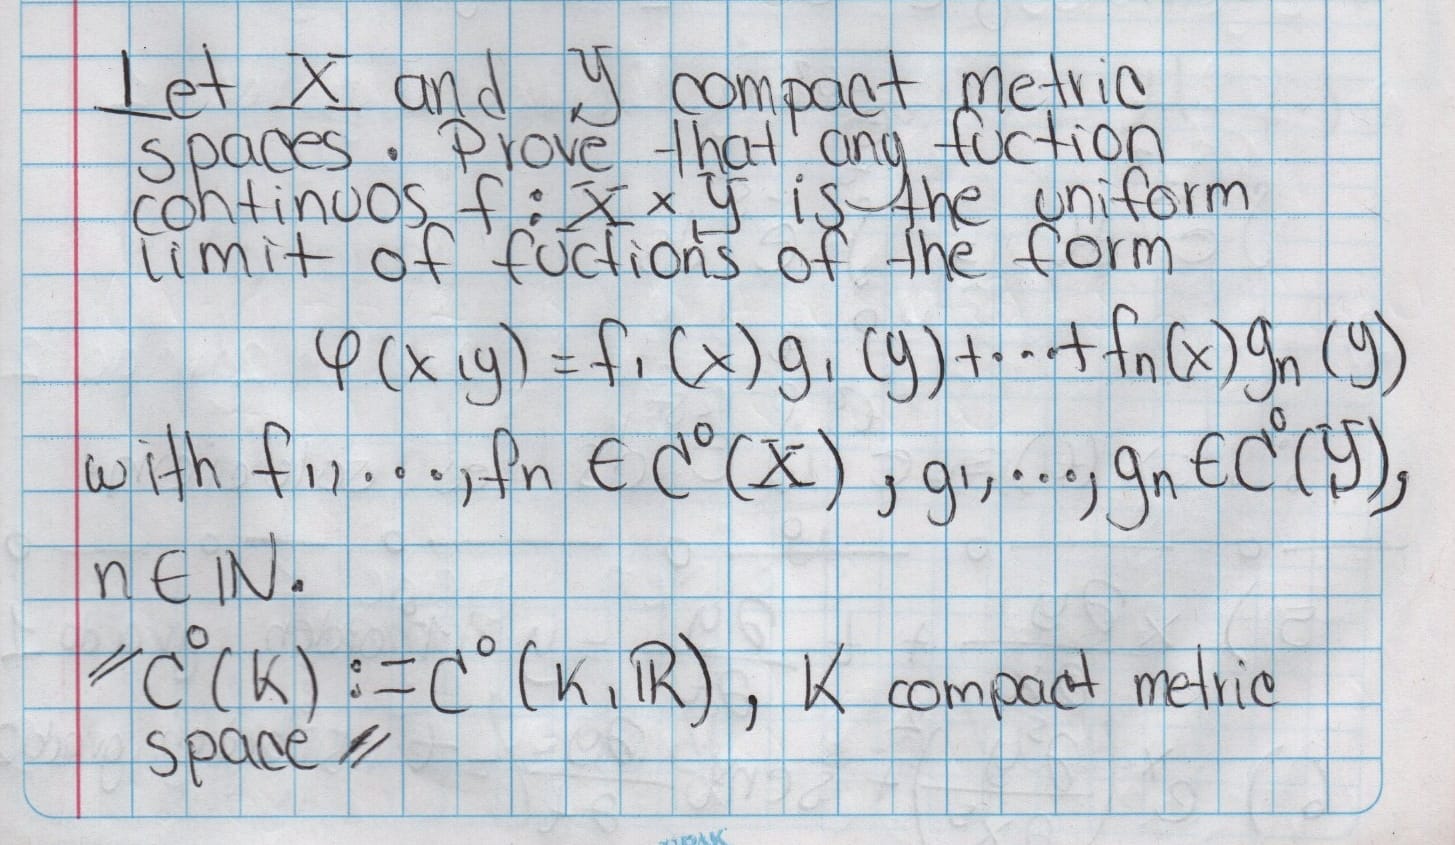 Let X and Y compact metric
spaces. Prove that any fuction
continuos f: X × Y is the uniform
limit of fuctions of the form
φ(x,y) = f₁(x)g₁(y)+...+fn(x)gn(y)
with f₁,...,fn ∈ C⁰(X), g₁,...,gn ∈ C⁰(Y),
n ∈ ℕ.
"C⁰(K) := C⁰(K, ℝ), K compact metric
space"